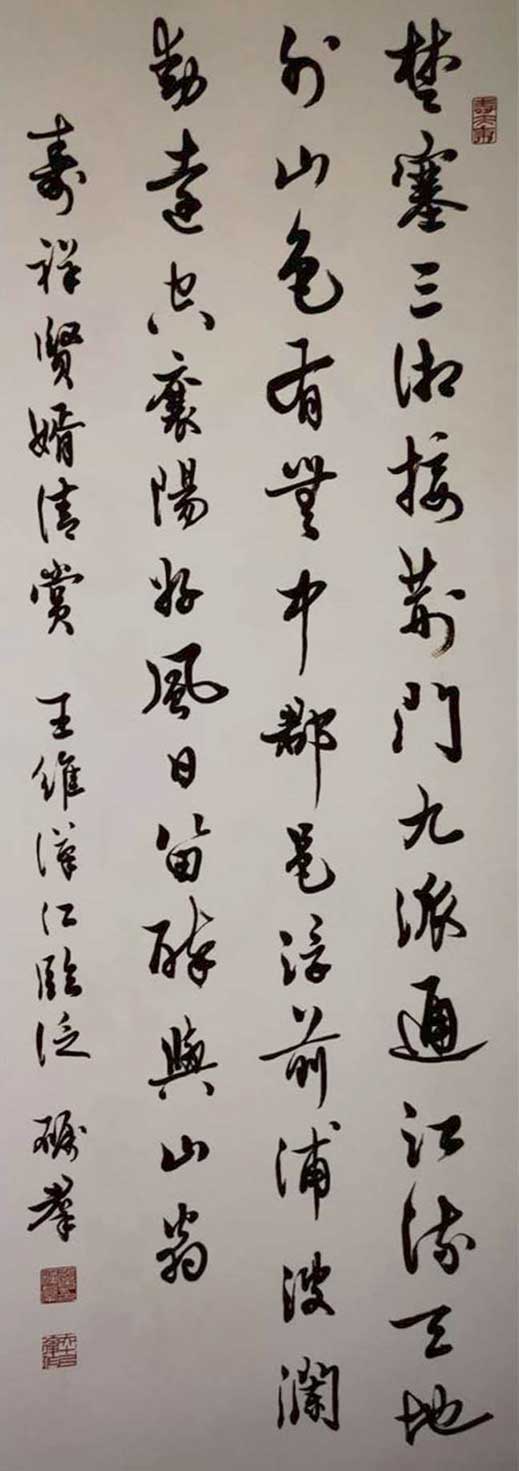 楚塞三湘接荆門九派通江流天地
外山色有無中郡邑浮前浦波瀾
動遠空襄陽好風日留醉與山翁
壽祥賢婿清賞 王維漢江臨泛